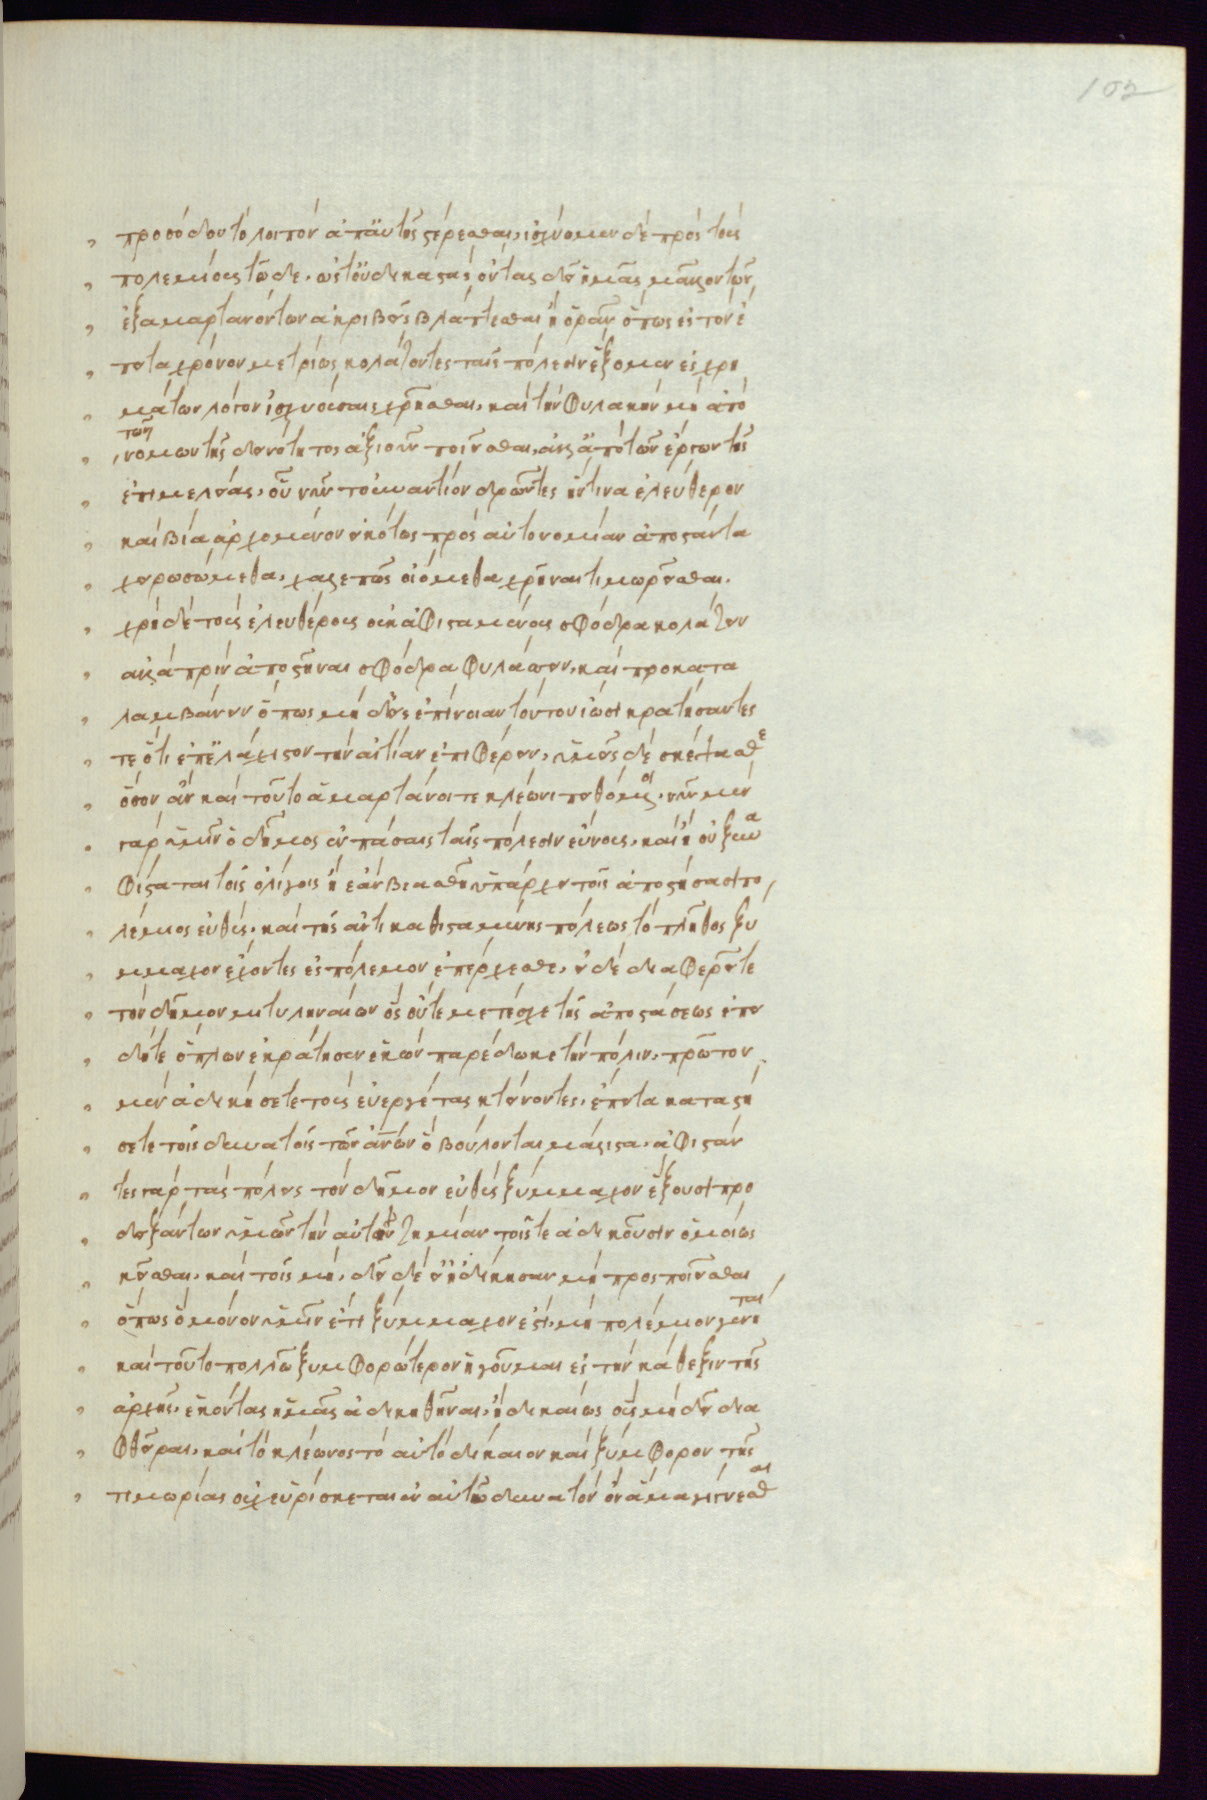 προσόδου τὸ λοιπὸν ἀπ' αὐτῆς στέρεσθαι. ἰσχύομεν δὲ πρὸς τοὺς
πολεμίους τῶδε. ὥστ' οὐ δικαστὰς ὄντας δεῖ ἡμᾶς μᾶλλον τῶν
ἐξαμαρτανόντων ἀκριβεῖς βλάπτεσθαι ἢ ὁρᾶν ὅπως ἐς τὸν ἔ
πειτα χρόνον μετρίως κολάζοντες ταῖς πόλεσιν ἕξομεν ἐς χρη
μάτων λόγον ἰσχυούσαις χρῆσθαι, καὶ τὴν φυλακὴν μὴ ἀπὸ
τῶν νόμων τῆς δεινότητος ἀξιοῦν ποιεῖσθαι, ἀλλ' ἀπὸ τῶν ἔργων τῆς
ἐπιμελείας. οὗ νῦν τοὐναντίον δρῶντες ἤν τινα ἐλεύθερον
καὶ βία ἀρχόμενον εἰκότως πρὸς αὐτονομίαν ἀποστάντα
χειρωσώμεθα, χαλεπῶς οἰόμεθα χρῆναι τιμωρεῖσθαι.
χρὴ δὲ τοὺς ἐλευθέρους οὐκ ἀφισταμένους σφόδρα κολάζειν
ἀλλὰ πρὶν ἀποστῆναι σφόδρα φυλάσσειν, καὶ προκατα
λαμβάνειν ὅπως μὴ δ' ἐς ἐπίνοιαν τούτου ἴωσι κρατήσαντες
τε ὅτι ἐπ' ἐλάχιστον τὴν αἰτίαν ἐπιφέρειν, ὑμεῖς δὲ σκέψασθε
ὅσον ἂν καὶ τοῦτο ἁμαρτάνοιτε κλέωνι πειθόμενοι. νῦν μὲν
γὰρ ὑμῖν ὁ δῆμος ἐν πάσαις ταῖς πόλεσιν εὔνους, καὶ ἢ οὐ ξυνα
φίσταται τοῖς ὀλίγοις ἢ ἐὰν βιασθῆ ὑπάρχει τοῖς ἀποστήσασι πο
λέμιος εὐθύς, καὶ τῆς ἀντικαθισταμένης πόλεως τὸ πλῆθος ξύ
μμαχον ἔχοντες ἐς πόλεμον ἐπέρχεσθε, εἰ δὲ διαφθερεῖτε
τὸν δῆμον μιτυληναίων ὃς οὔτε μετέσχε τῆς ἀποστάσεως ἐπει
δή τε ὅπλων ἐκράτησεν ἑκὼν παρέδωκε τὴν πόλιν, πρῶτον
μὲν ἀδικήσετε τοὺς εὐεργέτας κτείνοντες, ἔπειτα καταστή
σετε τοῖς δυνατοῖς τῶν ἀνων ὃ βούλονται μάλιστα, ἀφιστάν
τες γὰρ τὰς πόλεις τὸν δῆμον εὐθὺς ξύμμαχον ἕξουσι προ
δειξάντων ὑμῶν τὴν αὐτὴν ζημίαν τοῖς τε ἀδικοῦσιν ὁμοίως
κεῖσθαι, καὶ τοῖς μή, δεῖ δὲ εἰ ἠδίκησαν μὴ προσποιεῖσθαι
ὅπως ὃ μόνον ὑμῖν ἔτι ξύμμαχόν ἐστι μὴ πολέμιον γένηται
καὶ τοῦτο πολλῶ ξυμφορώτερον ἡγοῦμαι ἐς τὴν κάθεξιν τῆς
ἀρχῆς, ἑκόντας ἡμᾶς ἀδικηθῆναι, ἢ δικαίως οὓς μὴ δεῖ δια
φθεῖραι, καὶ τὸ κλέωνος τὸ αὐτὸ δίκαιον καὶ ξύμφορον τῆς
τιμωρίας οὐχ εὑρίσκεται ἐν αὐτῶ δυνατὸν ὂν ἅμα γίγνεσθαι